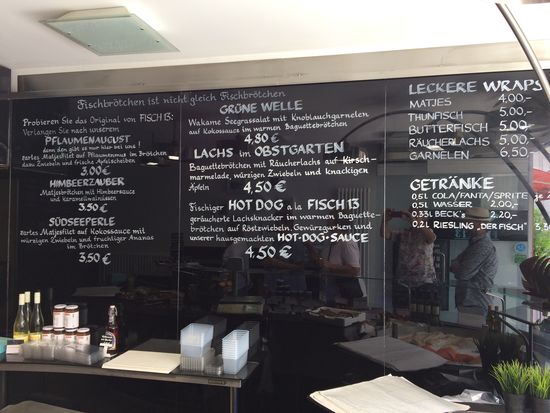 Fischbrötchen ist nicht gleich Fischbrötchen
Probieren Sie das Original von FISCH 13:
Verlangen Sie nach unserem
PFLAUMENAUGUST
denn den gibt es nur hier bei uns!
Zartes Matjesfilet auf Pflaumenmus im Brötchen
dazu Zwiebeln und frische Apfelscheiben
3,00 €
HIMBEERZAUBER
Matjesbrötchen mit Himbeersauce
und Karamellwalnüssen
3,50 €
SÜDSEEPERLE
Zartes Matjesfilet auf Kokossauce mit
würzigen Zwiebeln und fruchtiger Ananas
im Brötchen
3,50 €
GRÜNE WELLE
Wakame Seegrassalat mit Knoblauchgarnelen
auf Kokossauce im warmen Baguettebrötchen
4,80 €
LACHS im OBSTGARTEN
Baguettebrötchen mit Räucherlachs auf Kirsch-
marmelade, würzigen Zwiebeln und knackigen
Äpfeln
4,50 €
Fischiger HOT DOG a la FISCH 13
geräucherte Lachsknacker im warmen Baguette-
brötchen auf Röstzwiebeln, Gewürzgurken und
unserer hausgemachten HOT-DOG-SAUCE
4,50 €
LECKERE WRAPS
MATJES 4,00.-
THUNFISCH 5,00.-
BUTTERFISCH 5,00.-
RÄUCHERLACHS 5,00.-
GARNELEN 6,50
GETRÄNKE
0,5L COLA/FANTA/SPRITE
0,5L WASSER 2,00.-
0,33L BECK's 2,20.-
0,2L RIESLING „DER FISCH"